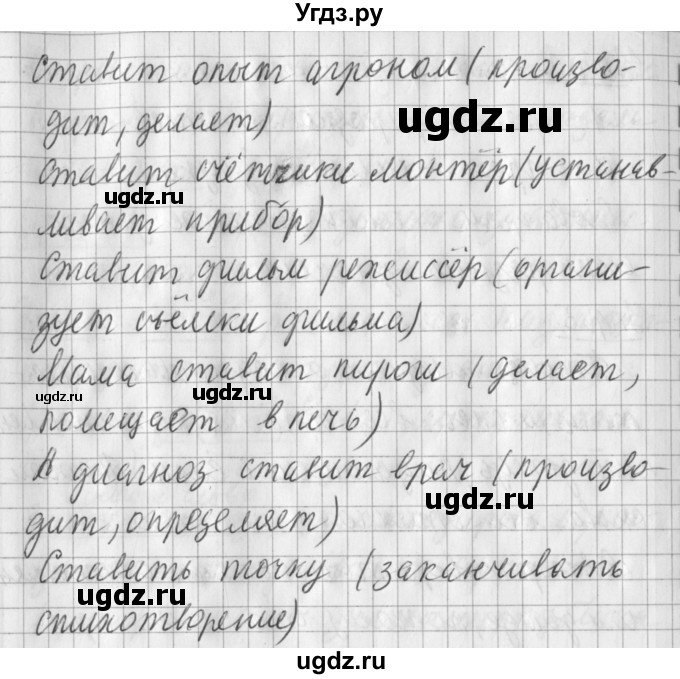 Угдз.ру
Ставит опыт агроном (произво-
дит, делает)
ugdz.ru
Ставит счётчики монтёр (устанав-
ugdz.ru
ливает прибор)
Ставит фильм режиссёр (органи-
зует съёмки фильма)
ugdz.ru
Мама ставит пироги (делает,
ugdz.ru
помещает в печь)
А диагноз ставит врач (произво-
ugdz.ru
дит, определяет)
Ставить точку (заканчивать
ugdz.ru
стихотворение)
ugdz.ru